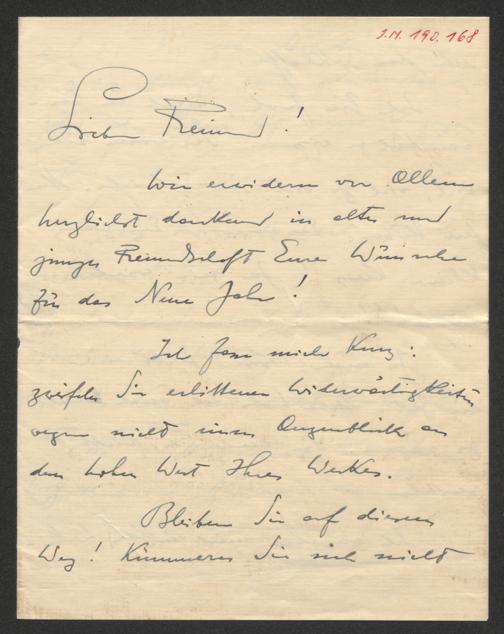 J.N. 190.168
Lieber Freund!
Wir erwidern vor Allem
herzlichst dankend in alter und
junger Freundschaft Eure Wünsche
für das Neue Jahr!
Ich fasse mich kurz:
zweifeln Sie erlittener Widerwärtigkeiten
wegen nicht einen Augenblick an
dem hohen Wert Ihres Werkes.
Bleiben Sie auf diesem
Weg! Kümmern Sie sich nicht